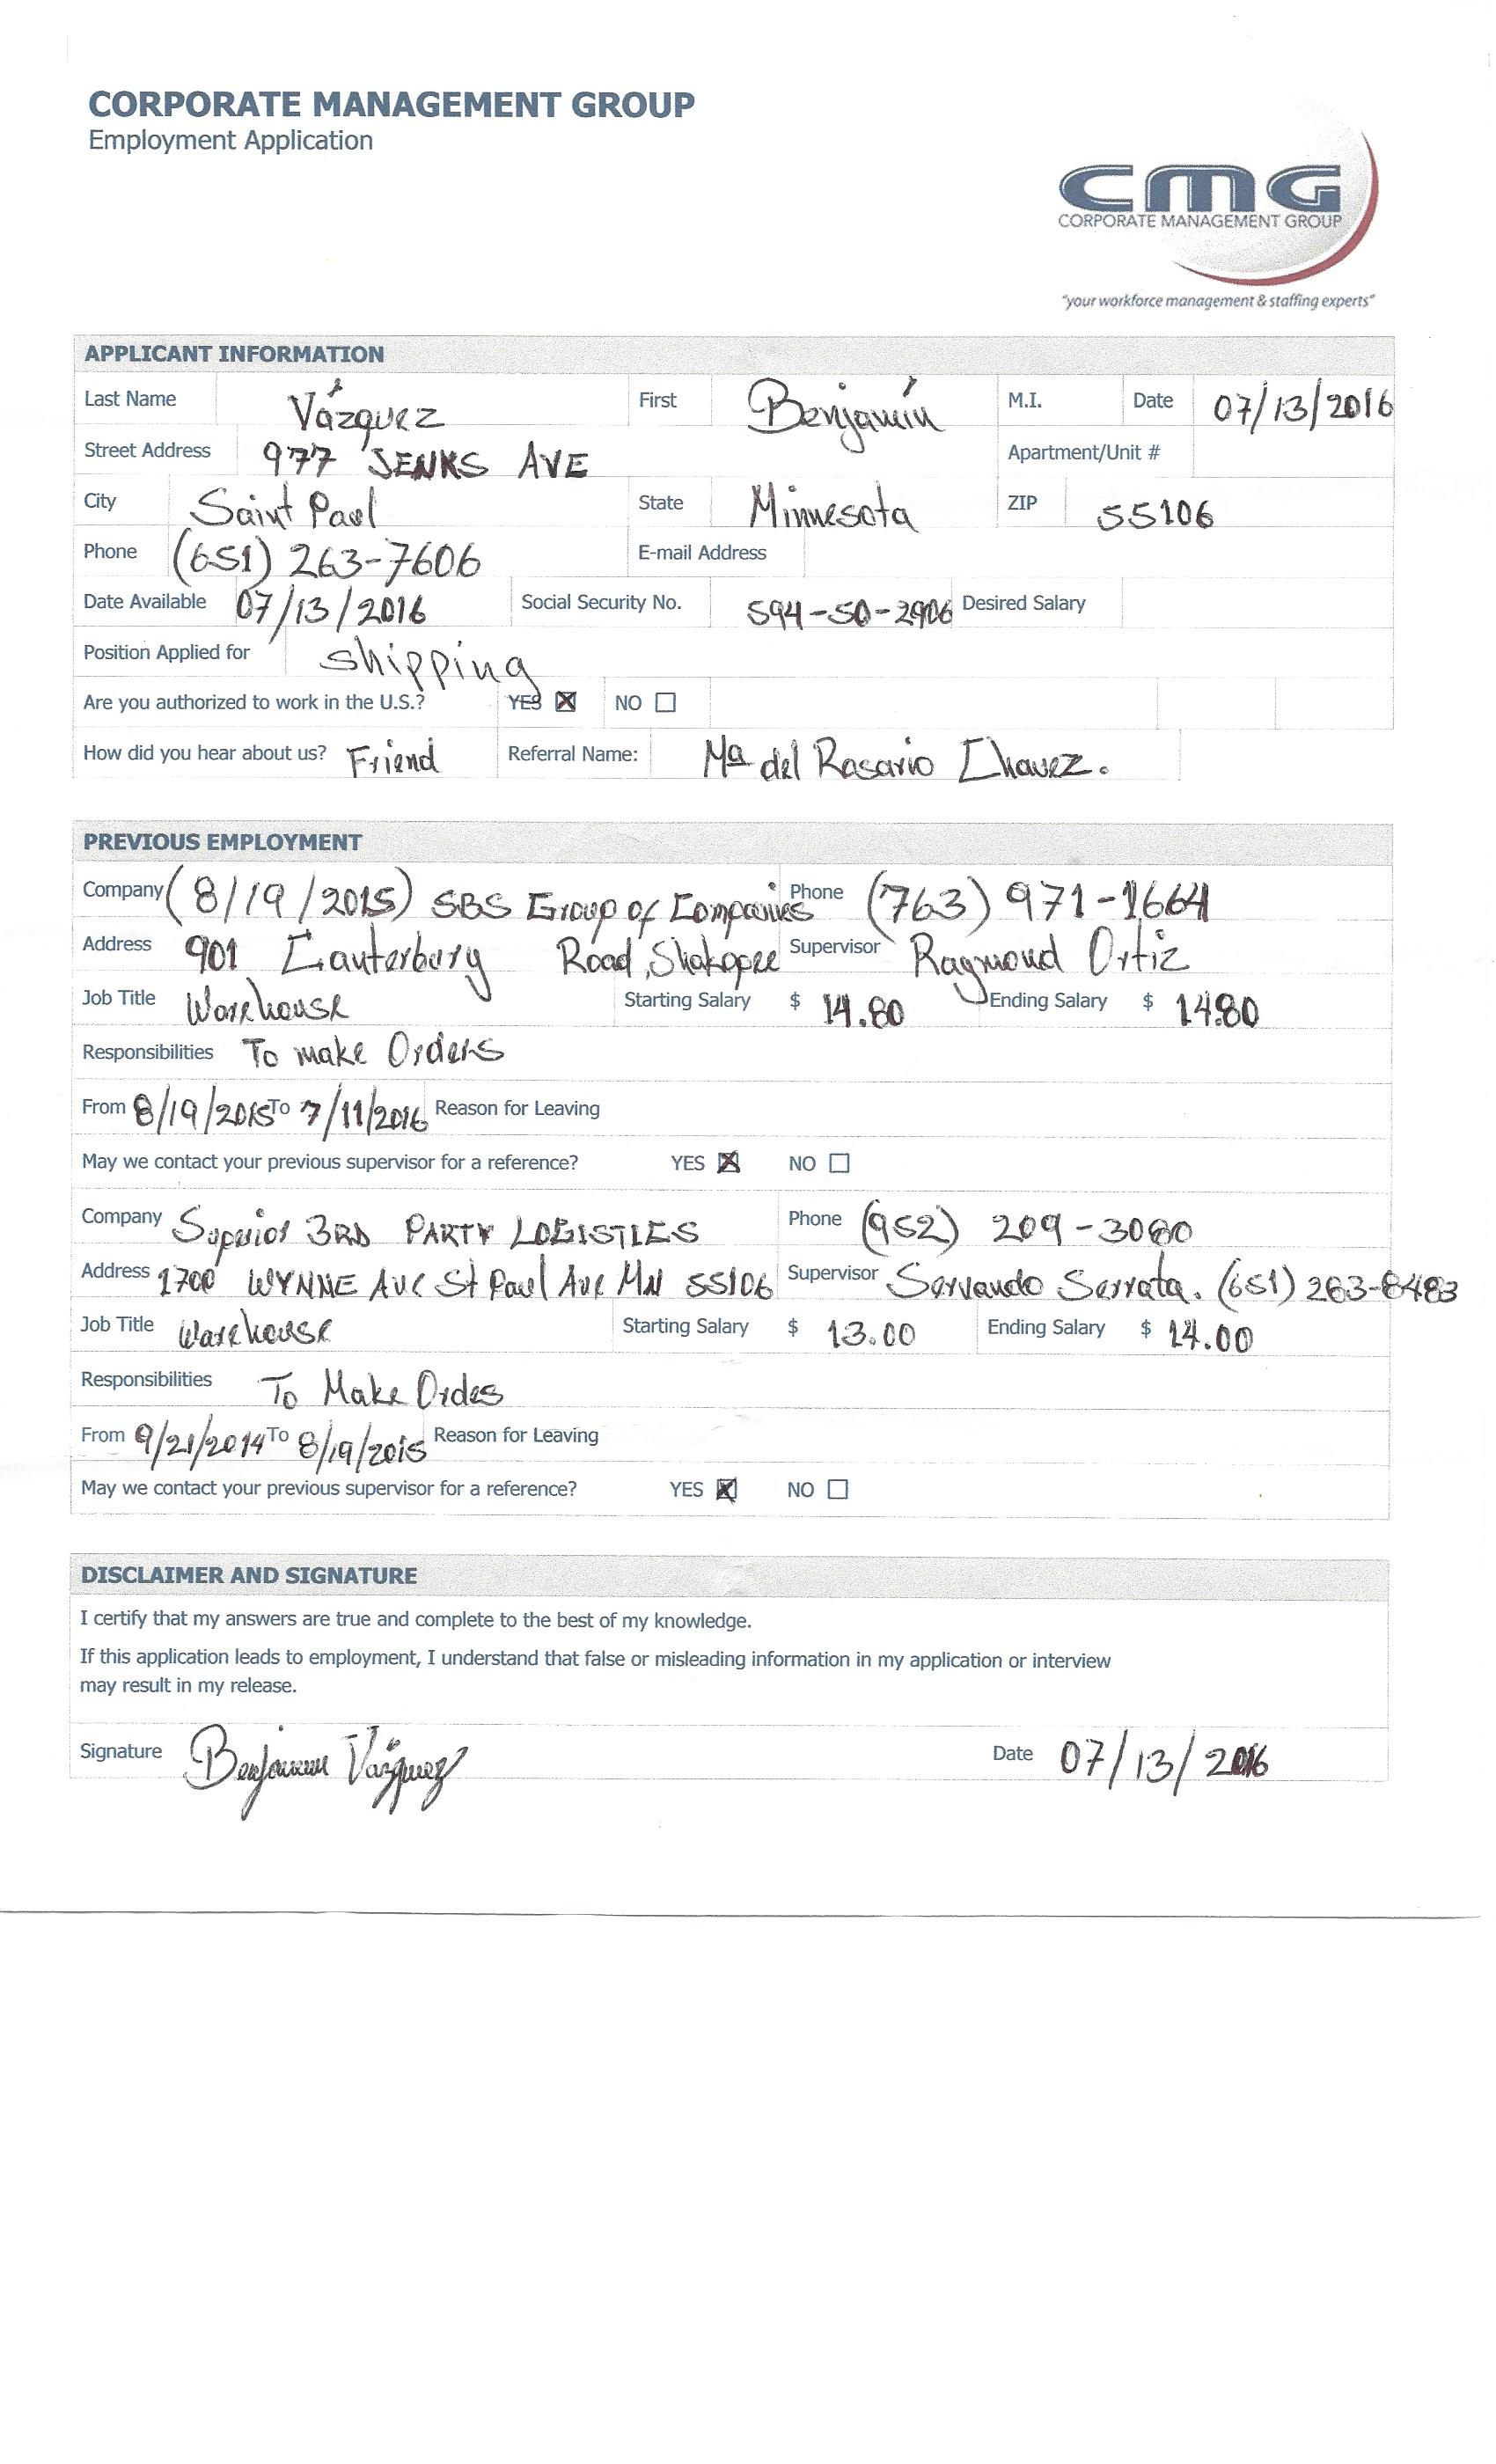 CORPORATE MANAGEMENT GROUP
Employment Application
CMG
CORPORATE MANAGEMENT GROUP
"your workforce management & staffing experts"
APPLICANT INFORMATION
Last Name Vázquez First Benjamín M.I. Date 07/13/2016
Street Address 977 JENKS AVE Apartment/Unit #
City Saint Paul State Minnesota ZIP 55106
Phone (651) 263-7606 E-mail Address
Date Available 07/13/2016 Social Security No. 594-50-2906 Desired Salary
Position Applied for shipping
Are you authorized to work in the U.S.? YES ☒ NO ☐
How did you hear about us? Friend Referral Name: Mª del Rosario Chavez.
PREVIOUS EMPLOYMENT
Company (8/19/2015) SBS Group of Companies Phone (763) 971-1664
Address 901 Canterbury Road, Shakopee Supervisor Raymond Ortiz
Job Title Warehouse Starting Salary $ 14.80 Ending Salary $ 14.80
Responsibilities To make Orders
From 8/19/2015 To 7/11/2016 Reason for Leaving
May we contact your previous supervisor for a reference? YES ☒ NO ☐
Company Superior 3RD PARTY LOGISTICS Phone (952) 209-3080
Address 1700 WYNNE Ave St Paul Ave MN 55106 Supervisor Servando Serrata. (651) 263-8483
Job Title Warehouse Starting Salary $ 13.00 Ending Salary $ 14.00
Responsibilities To Make Ordes
From 9/21/2014 To 8/19/2015 Reason for Leaving
May we contact your previous supervisor for a reference? YES ☒ NO ☐
DISCLAIMER AND SIGNATURE
I certify that my answers are true and complete to the best of my knowledge.
If this application leads to employment, I understand that false or misleading information in my application or interview
may result in my release.
Signature Benjamin Vázquez Date 07/13/2016